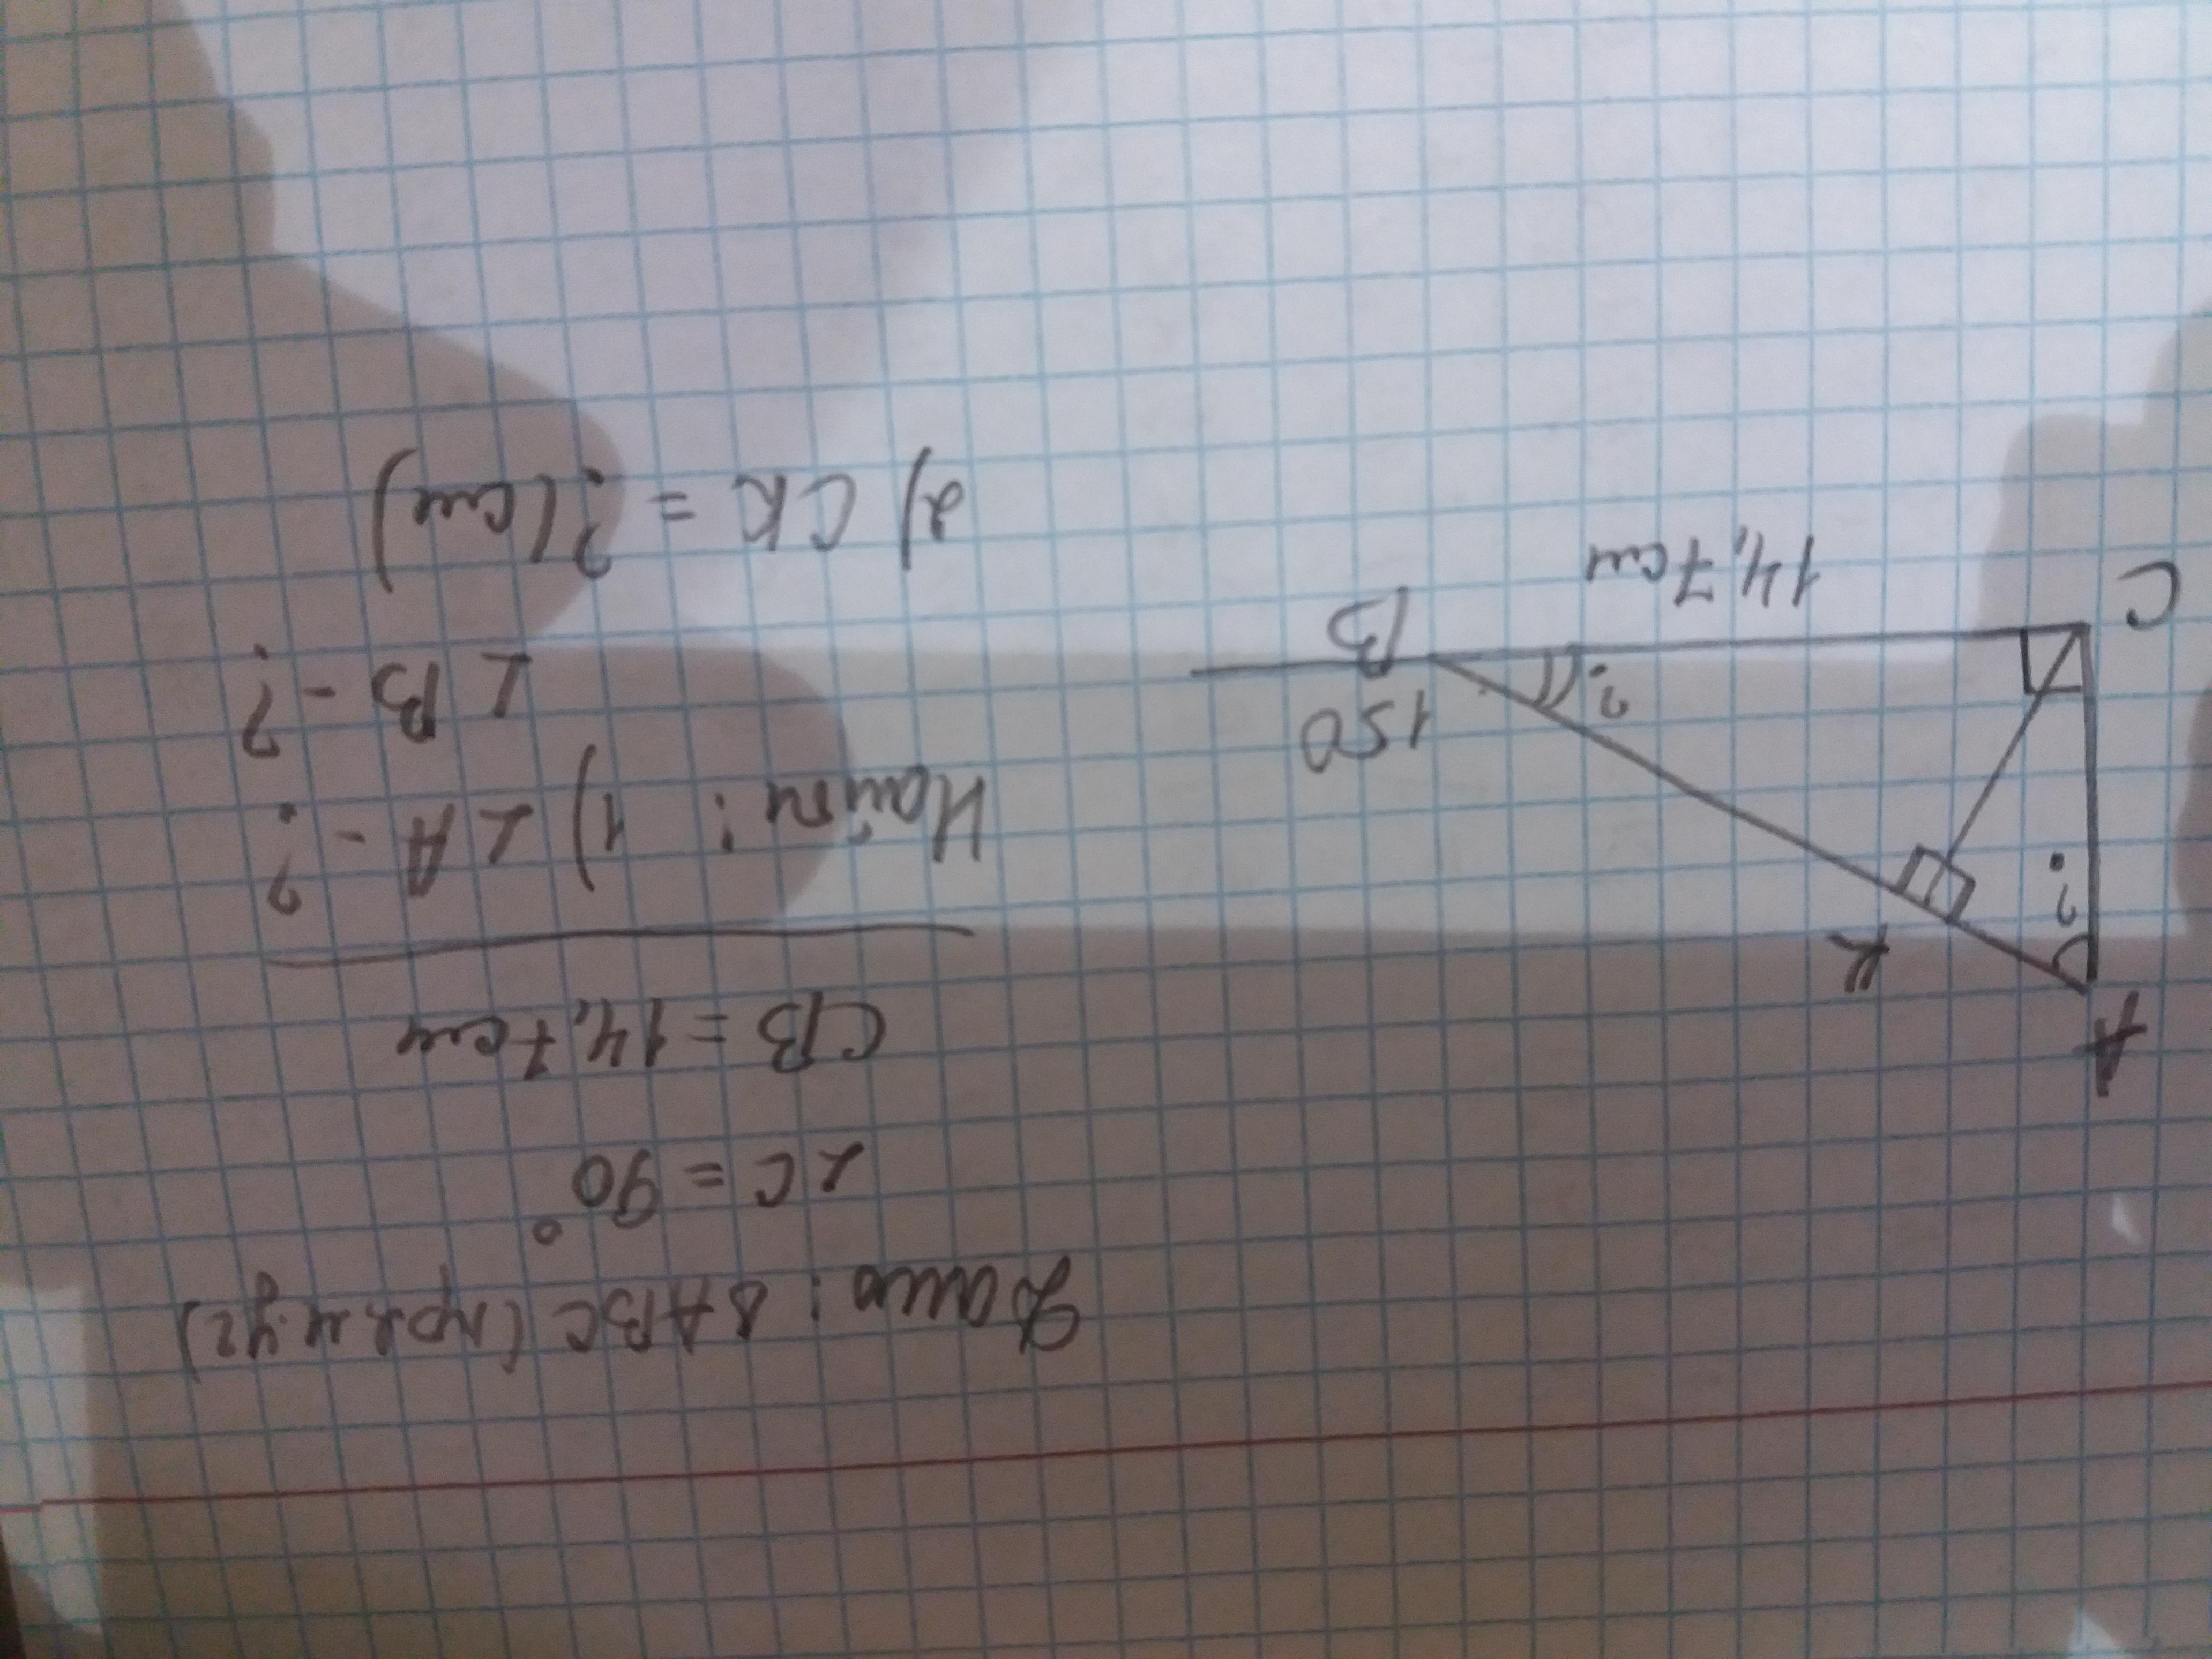 Дано: ΔABC (прям.уг)
∠C = 90°
CB = 14,7 см
Найти: 1) ∠A - ?
∠B - ?
2) CK = ? (см)
A
K
?
?
150
C
14,7 см
B